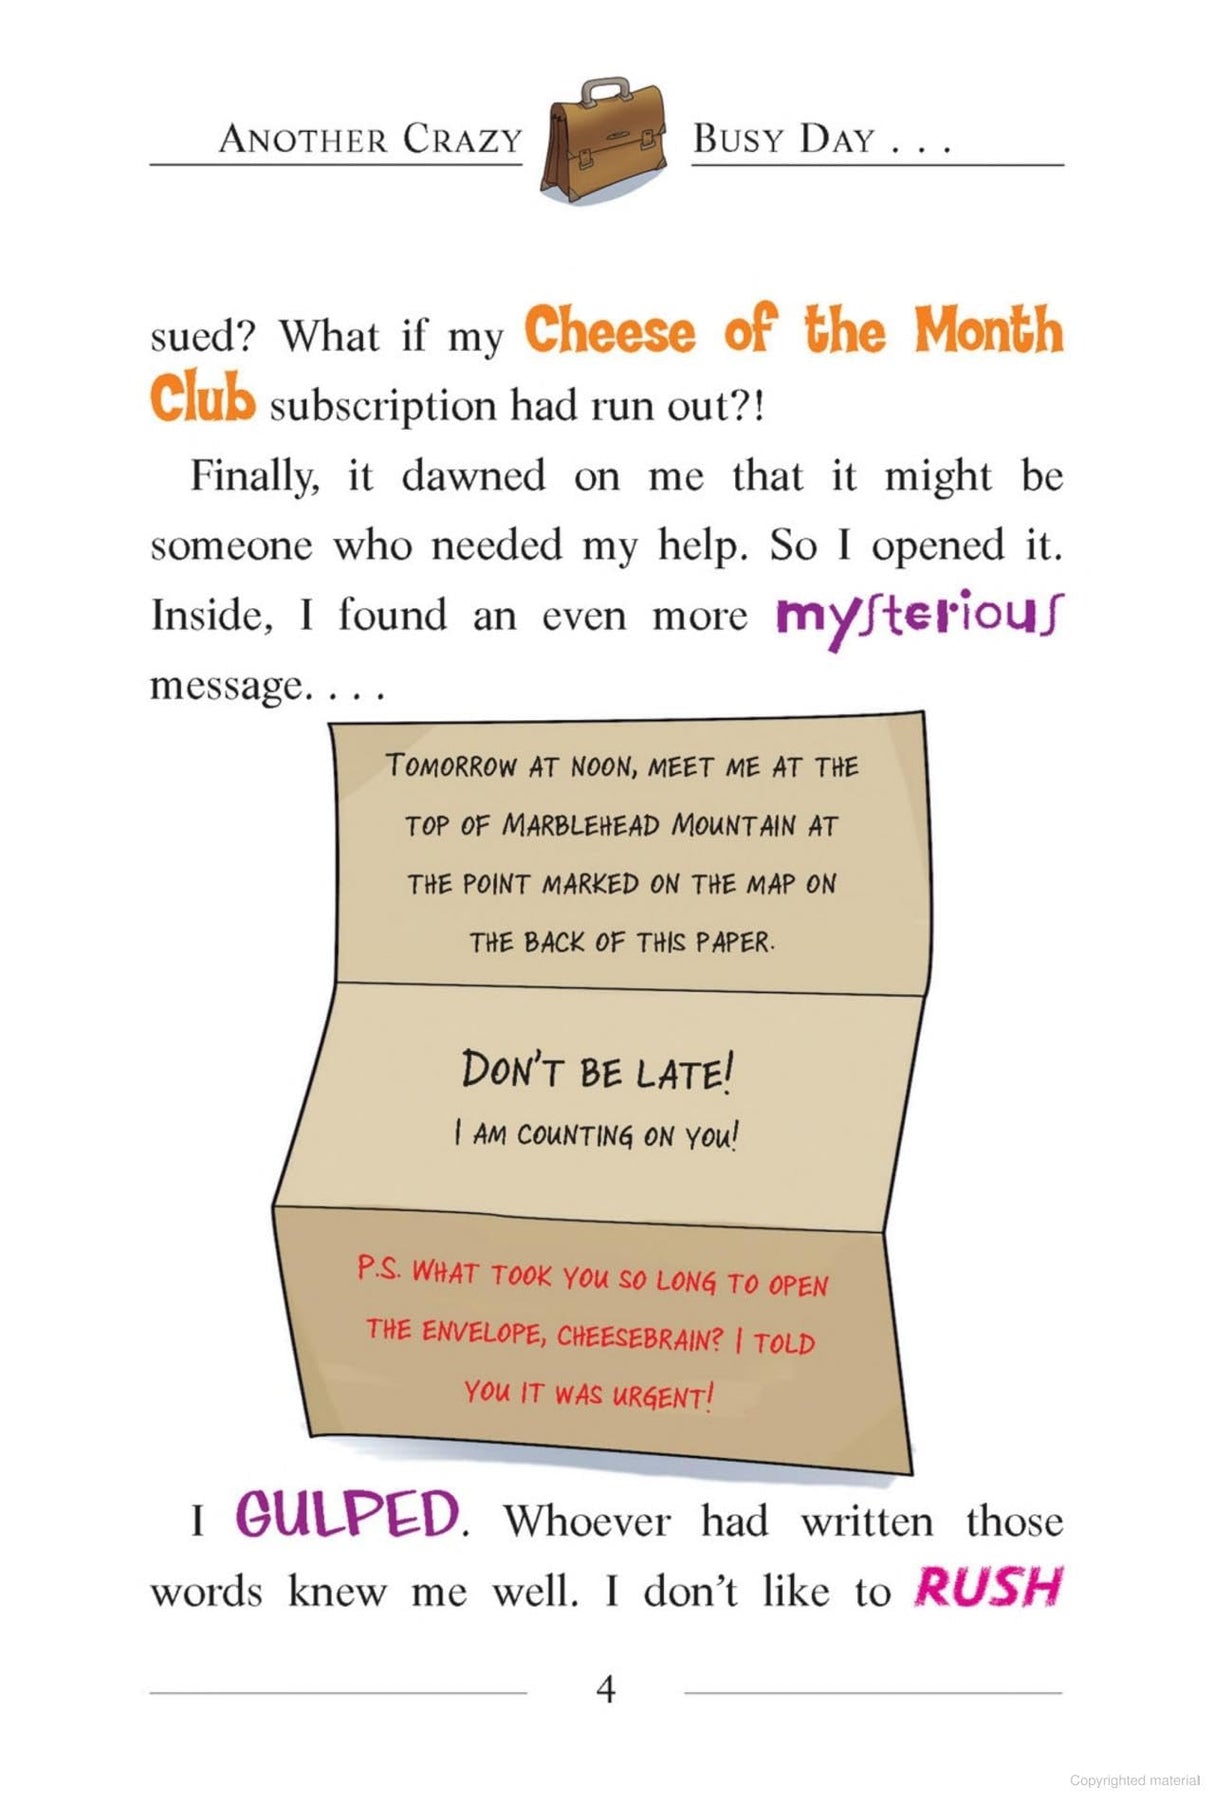 ANOTHER CRAZY BUSY DAY . . .
sued? What if my Cheese of the Month
Club subscription had run out?!
Finally, it dawned on me that it might be
someone who needed my help. So I opened it.
Inside, I found an even more mysterious
message. . . .
TOMORROW AT NOON, MEET ME AT THE
TOP OF MARBLEHEAD MOUNTAIN AT
THE POINT MARKED ON THE MAP ON
THE BACK OF THIS PAPER.
DON'T BE LATE!
I AM COUNTING ON YOU!
P.S. WHAT TOOK YOU SO LONG TO OPEN
THE ENVELOPE, CHEESEBRAIN? I TOLD
YOU IT WAS URGENT!
I GULPED. Whoever had written those
words knew me well. I don't like to RUSH
4
Copyrighted material